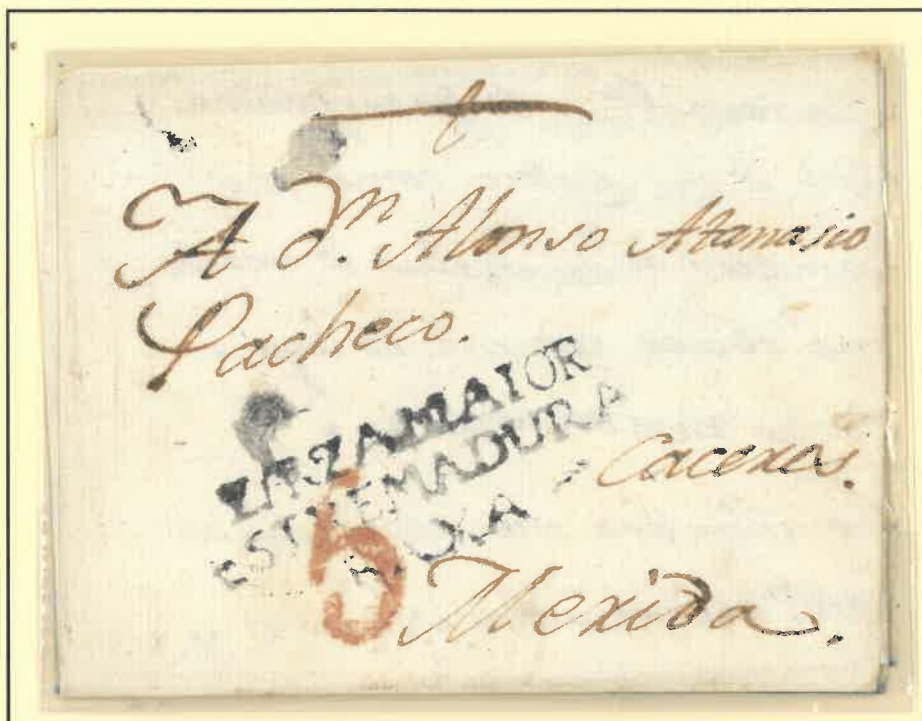 A Dn. Alonso Atanasio
Pacheco.
ZARZAMAIOR
ESTREMADURA
BAXA
Caceres.
5
Merida.